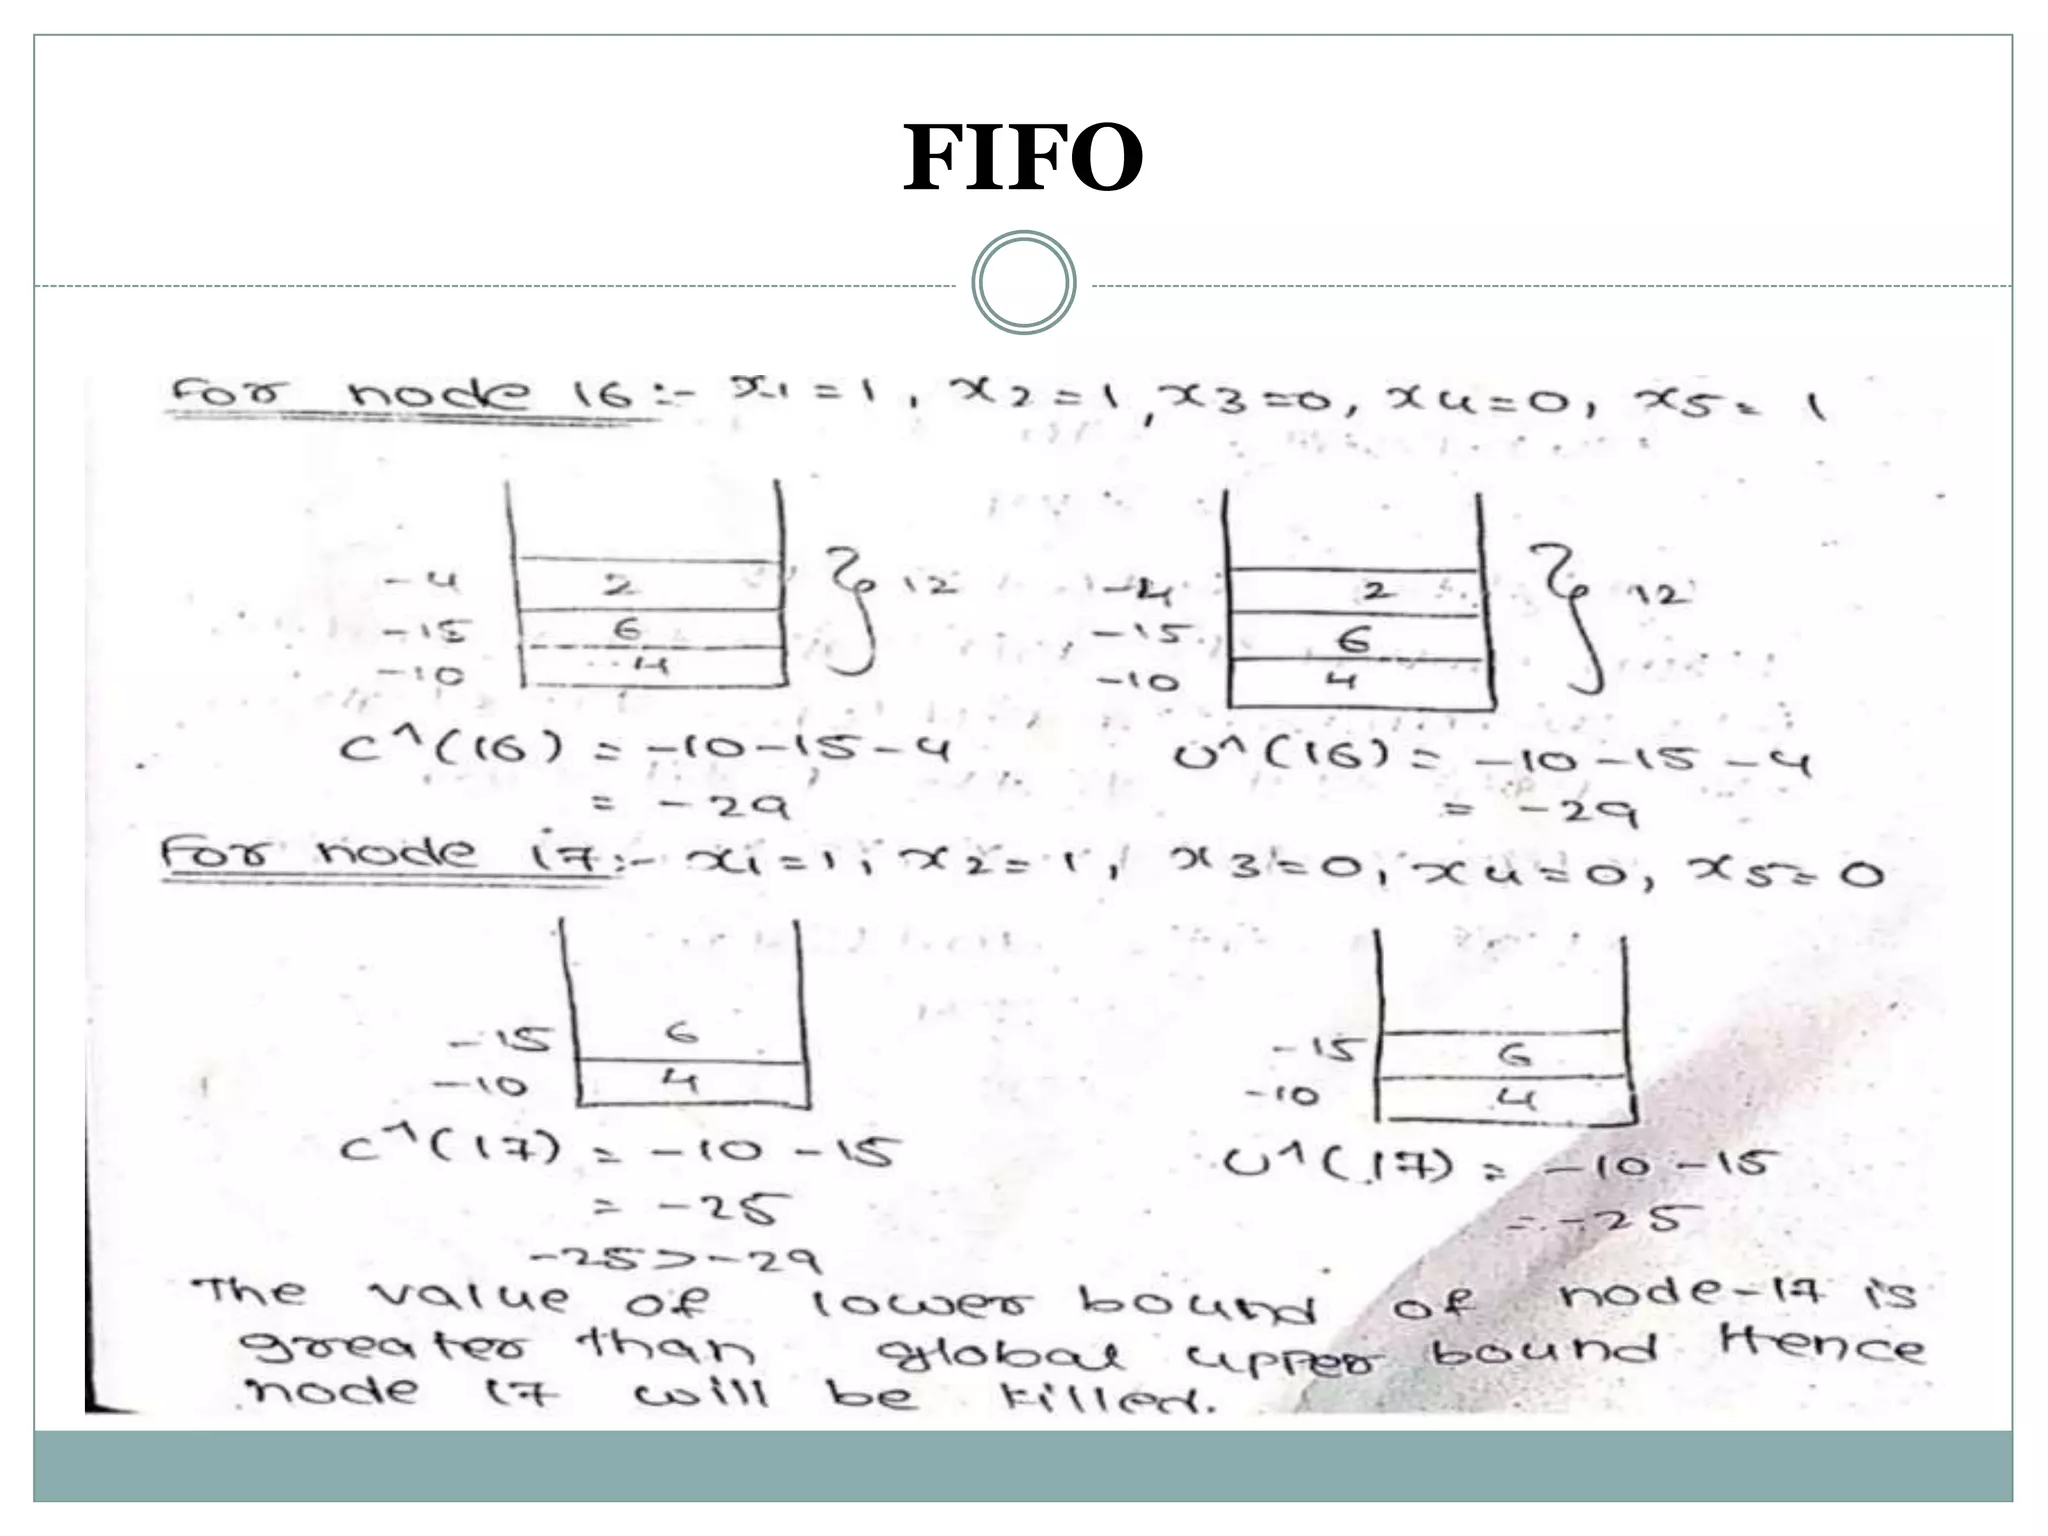 FIFO
For node 16:- x1=1, x2=1, x3=0, x4=0, x5=1
-4 2 } 12 -4 2 } 12
-15 6 -15 6
-10 4 -10 4
C^(16) = -10-15-4 U^(16) = -10-15-4
= -29 = -29
For node 17:- x1=1, x2=1, x3=0, x4=0, x5=0
-15 6 -15 6
-10 4 -10 4
C^(17) = -10-15 U^(17) = -10-15
= -25 = -25
-25>-29
The value of lower bound of node-17 is
greater than global upper bound Hence
node 17 will be killed.